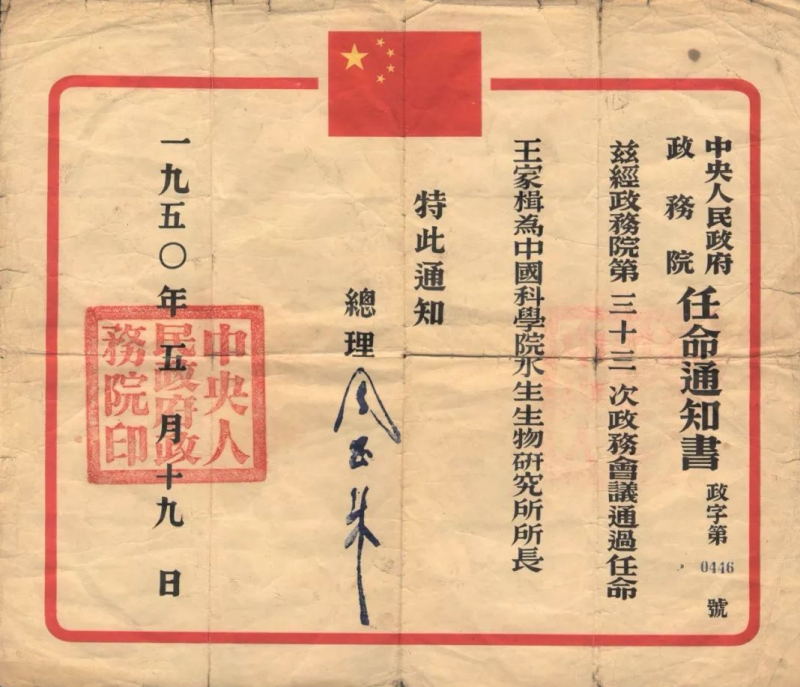 中央人民政府
政務院
任命通知書
政字第0446號
茲經政務院第三十三次政務會議通過任命
王家楫為中國科學院水生生物研究所所長
特此通知
總理 周恩来
一九五〇年五月十九日
中央人民政府政務院印